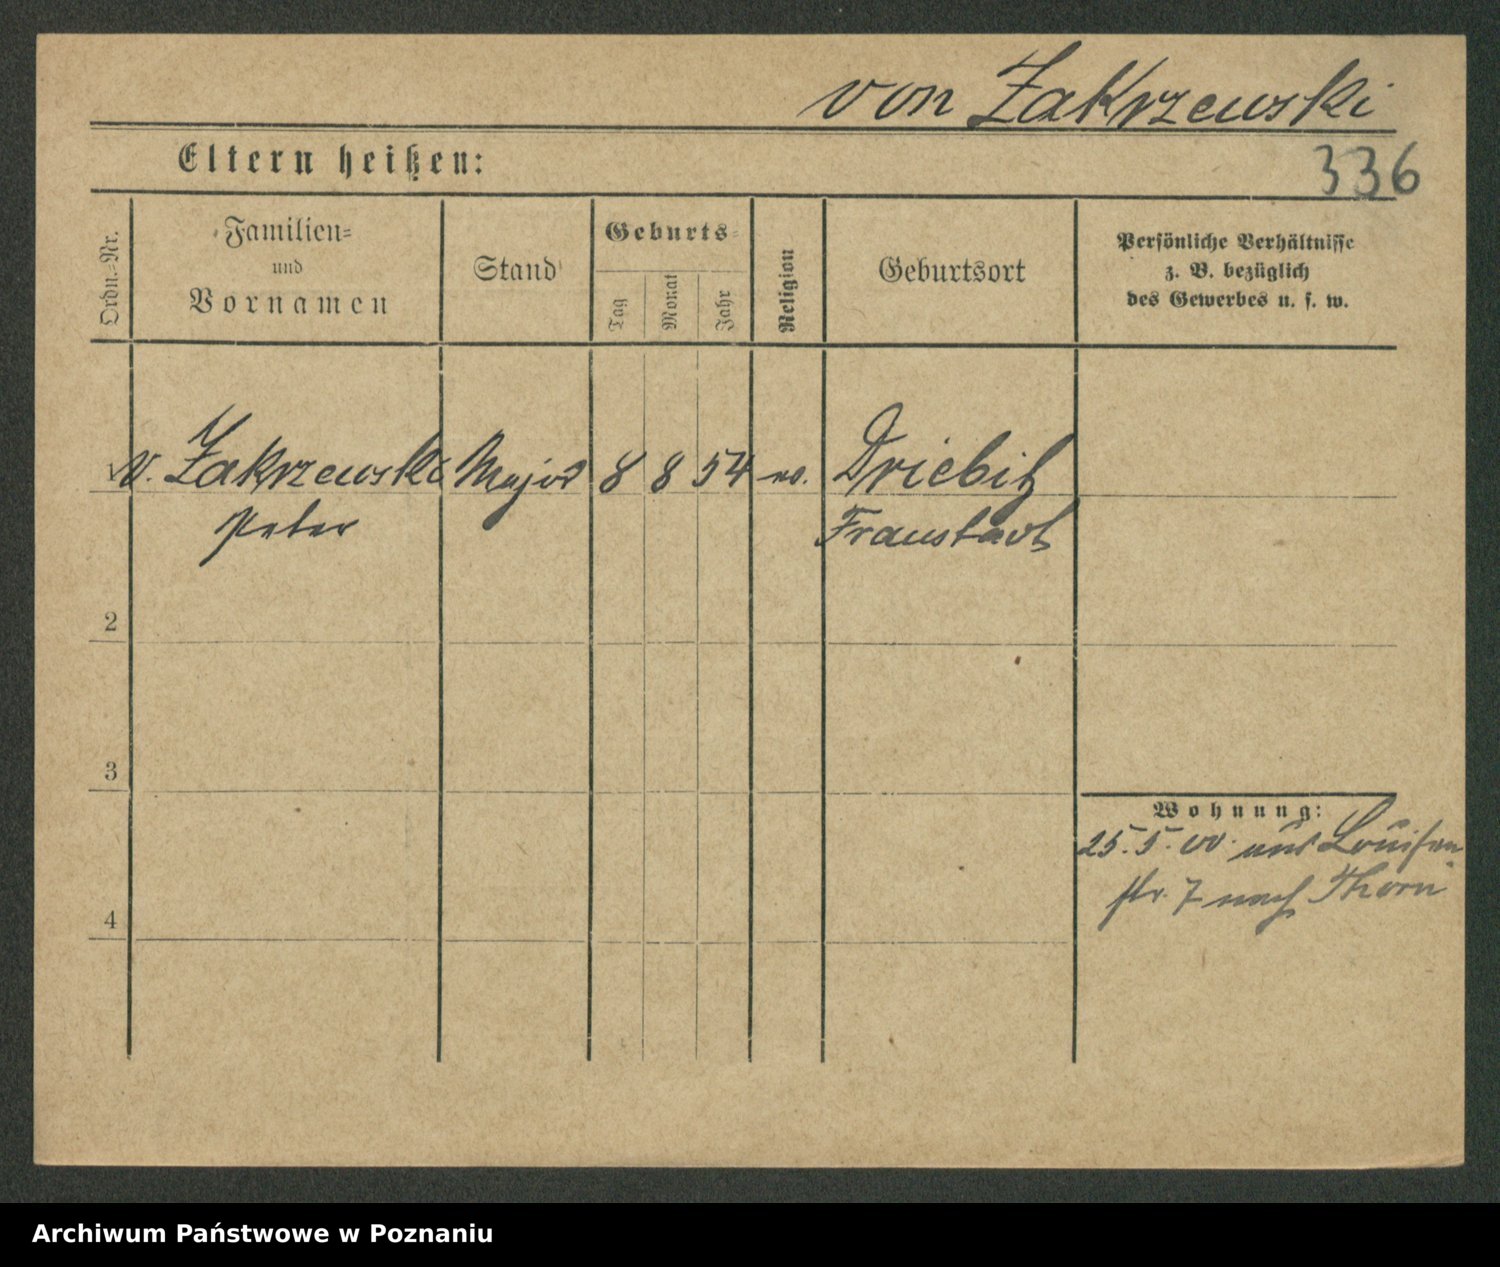 von Zakrzewski
Eltern heißen:
336
Ordn.-Nr.
Familien-
und
Vornamen
Stand
Geburts-
Tag
Monat
Jahr
Religion
Geburtsort
Persönliche Verhältnisse
z. B. bezüglich
des Gewerbes u. s. w.
1 v. Zakrzewski Major 8 8 54 ev. Driebitz
Peter Fraustadt
2
3
Wohnung:
25.5.00. aus Louisen
str. 7 nach Thorn
4
Archiwum Państwowe w Poznaniu